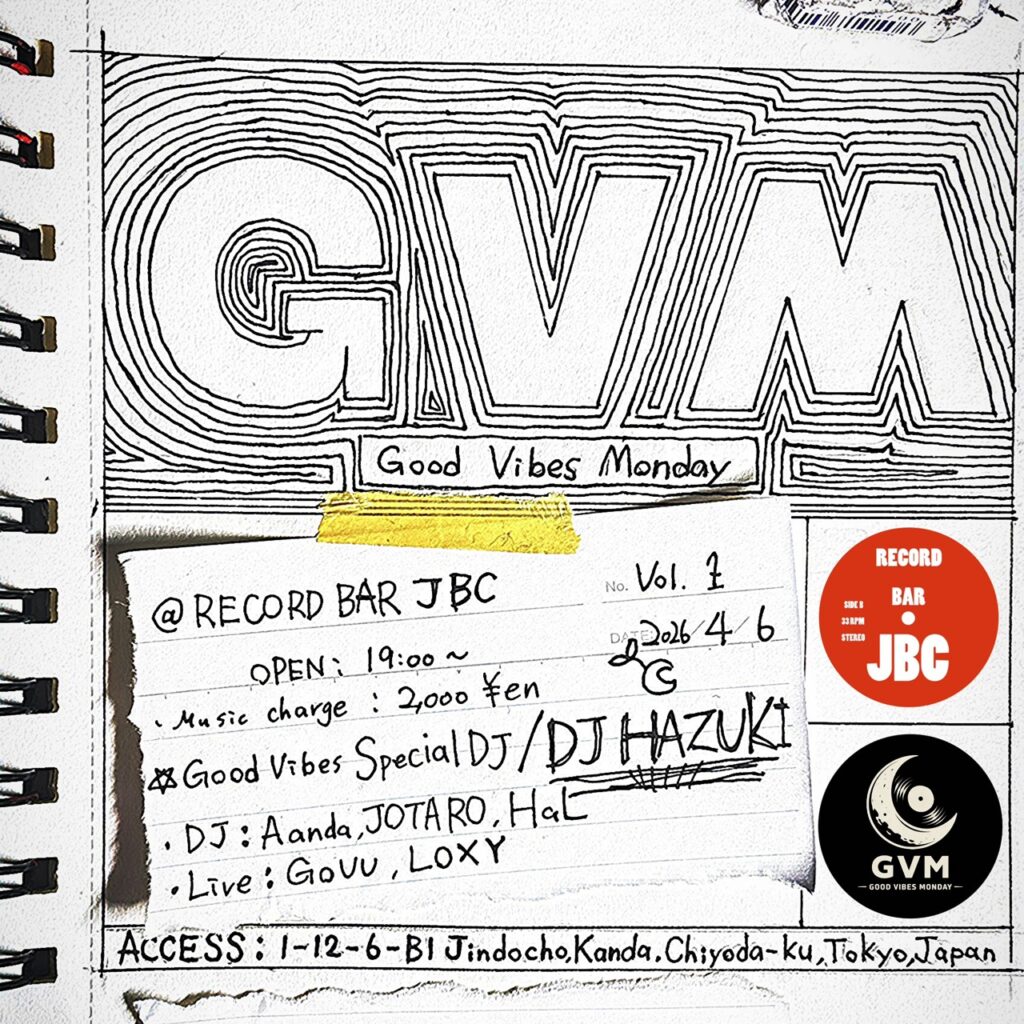 GVM
Good Vibes Monday
No. Vol. 1
DATE: 2026/4/6
@ RECORD BAR JBC
OPEN: 19:00 ~
・Music charge : 2,000 ¥en
☆ Good Vibes Special DJ / DJ HAZUKI
・DJ : Aanda, JOTARO, HaL
・Live : GOVU, LOXY
RECORD
BAR
SIDE B
33 RPM
STEREO
JBC
GVM
GOOD VIBES MONDAY
ACCESS : 1-12-6-B1 Jindocho, Kanda. Chiyoda-ku, Tokyo, Japan